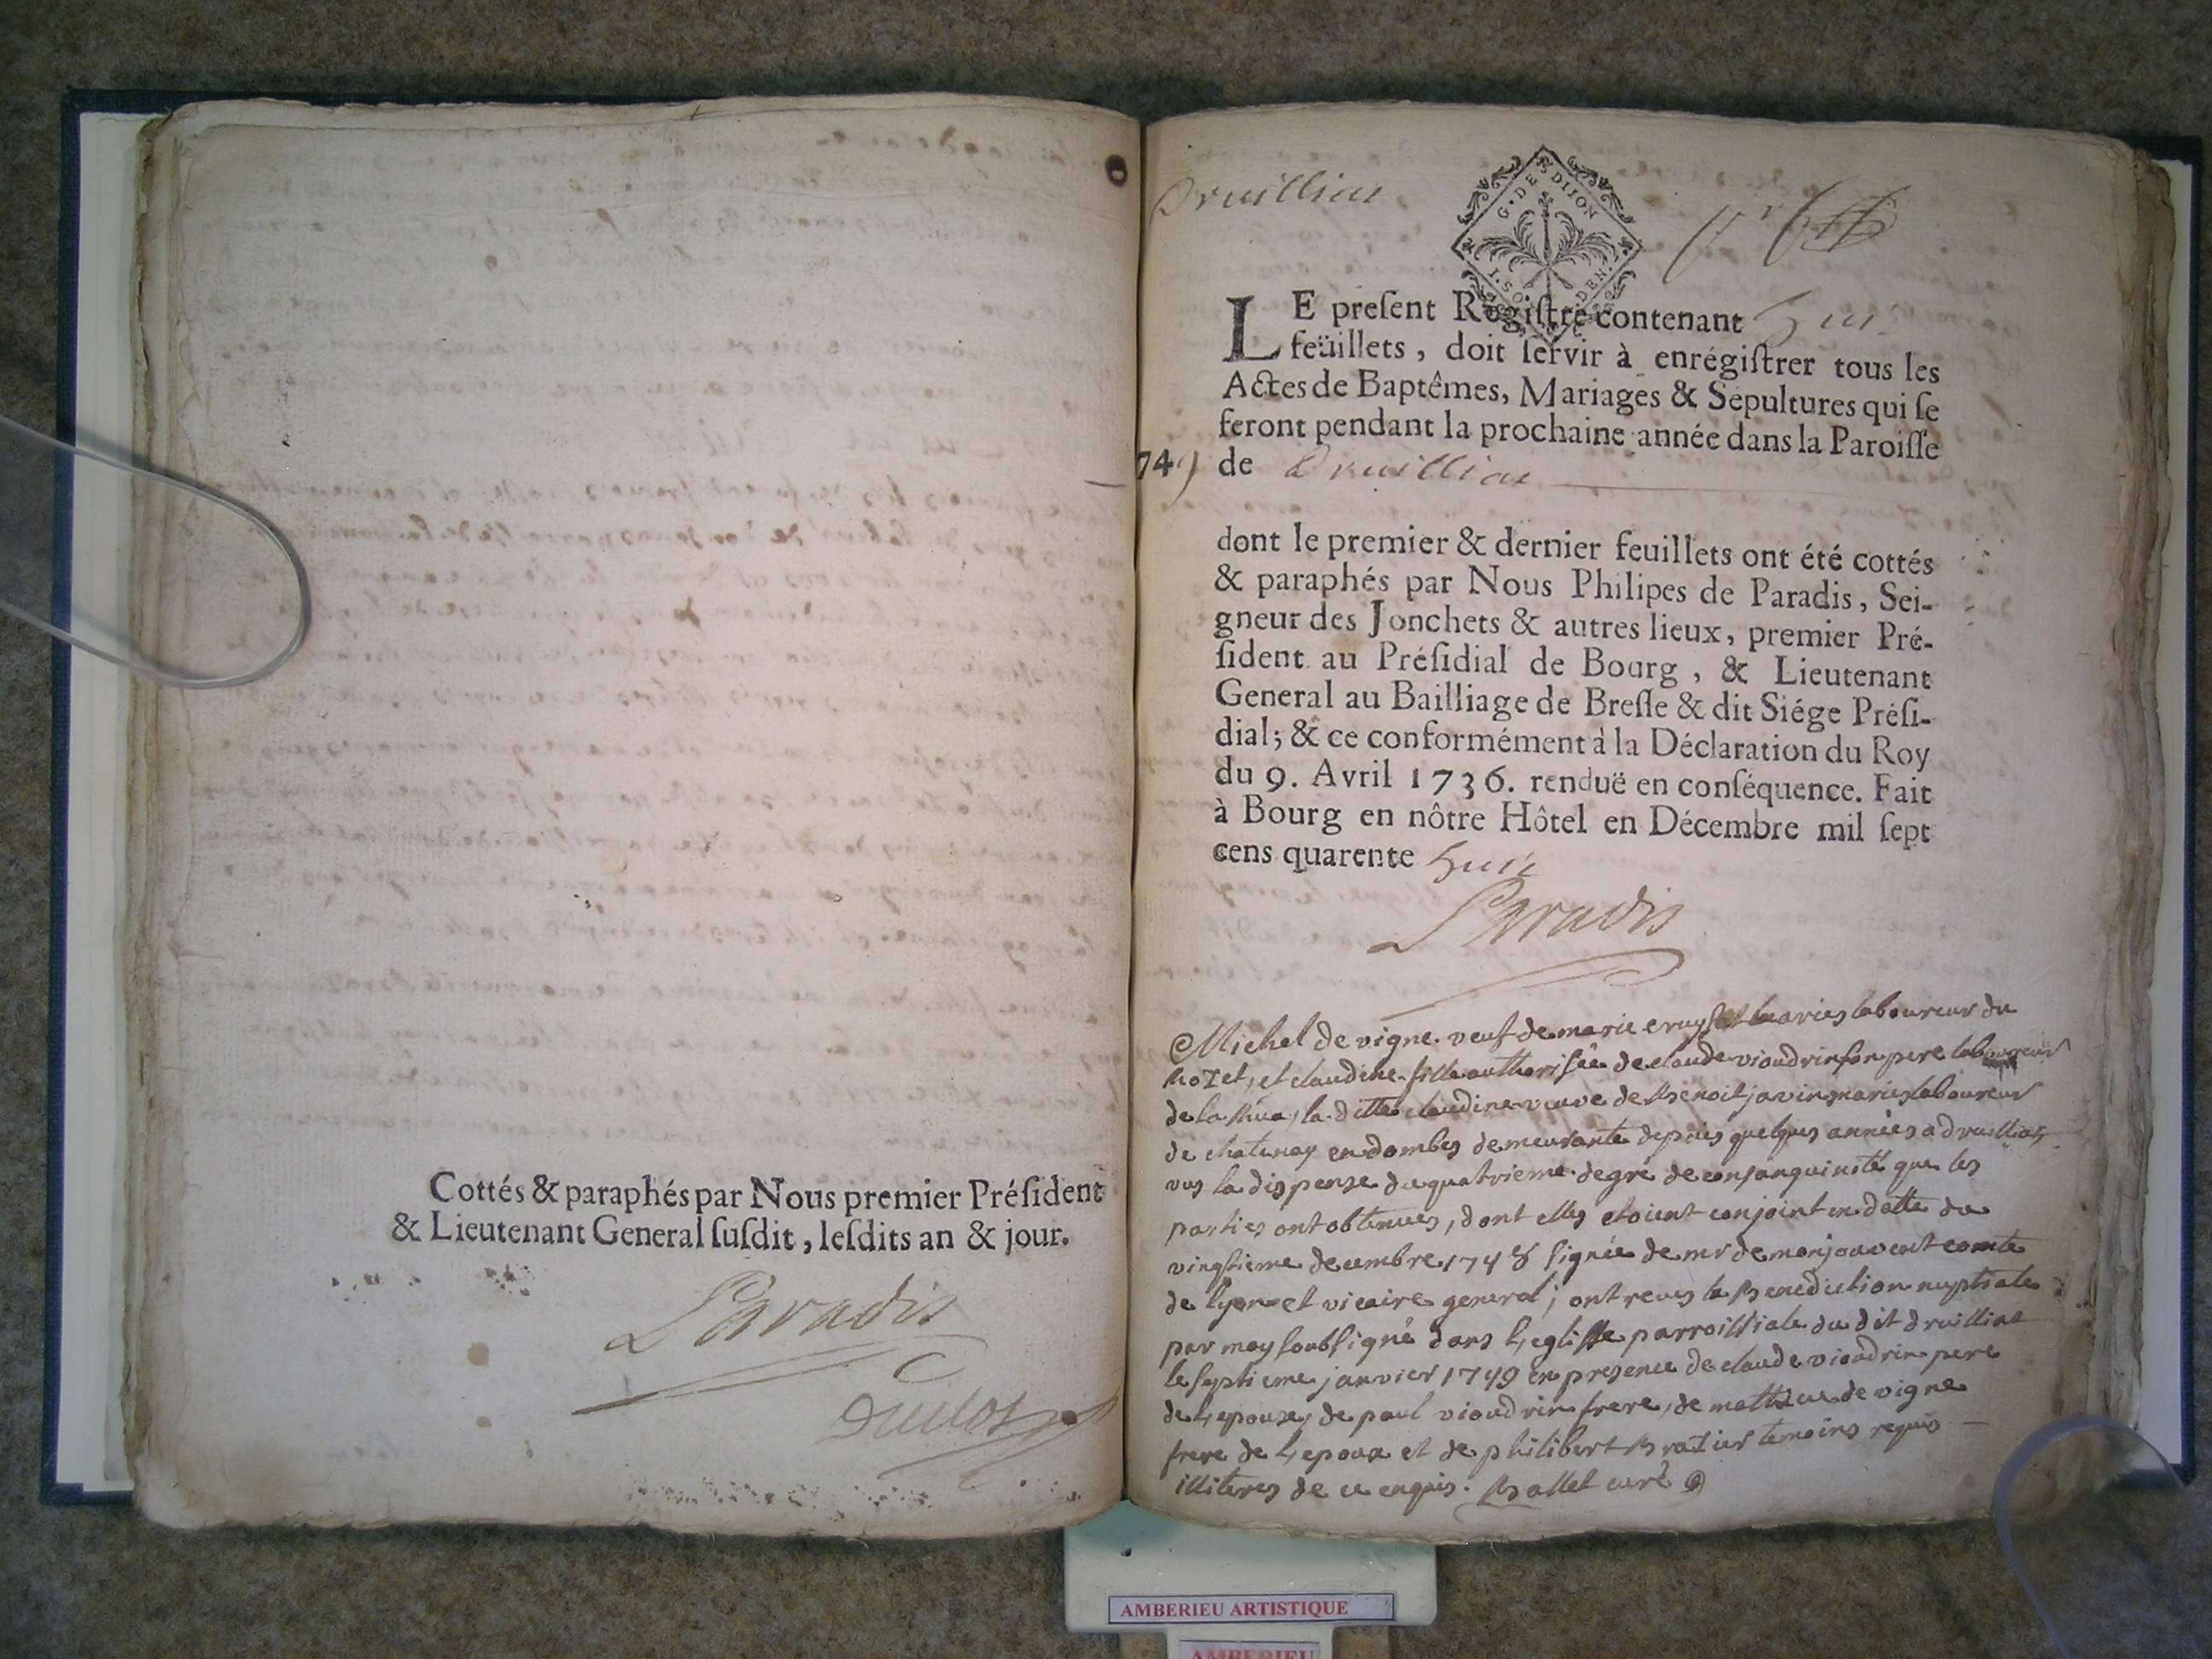 Cottés & paraphés par Nous premier Préſident
& Lieutenant General ſuſdit, leſdits an & jour.
Paradis
Duclos
Druillias
G. DE DIJON
LE preſent Regiſtre contenant huit
feüillets, doit ſervir à enrégiſtrer tous les
Actes de Baptêmes, Mariages & Sepultures qui ſe
feront pendant la prochaine année dans la Paroiſſe
749 de Druillias
dont le premier & dernier feuillets ont été cottés
& paraphés par Nous Philipes de Paradis, Sei-
gneur des Jonchets & autres lieux, premier Pré-
ſident au Préſidial de Bourg, & Lieutenant
General au Bailliage de Breſſe & dit Siége Préſi-
dial; & ce conformément à la Déclaration du Roy
du 9. Avril 1736. renduë en conſéquence. Fait
à Bourg en nôtre Hôtel en Décembre mil ſept
cens quarente huit
Paradis
Michel de vigne veuf de marie laboureur du
et claudine fille authorisée de claude vioudrin son pere laboureur
de la la ditte claudine veuve de Benoit javin laboureur
de chatenay en dombes demeurante depuis quelques années a druillias
vus la dispense du quatrieme degré de consanguinité que les
parties ont obtenues, dont elles etoient conjoint en datte du
vingtieme decembre 1748 signée de mr de monjouvent comte
de lyon et vicaire general; ont reçus la Benediction nuptiale
par moy soubsigné dans l,eglisse parroissiale du dit druillias
le septieme janvier 1749 en presence de claude vioudrin pere
de l,epouse, de paul vioudrin frere, de mathieu de vigne
frere de l,epoux et de philibert Brazier temoins requis
illiteres de ce enquis. Ballet curé
AMBERIEU ARTISTIQUE
AMBERIEU